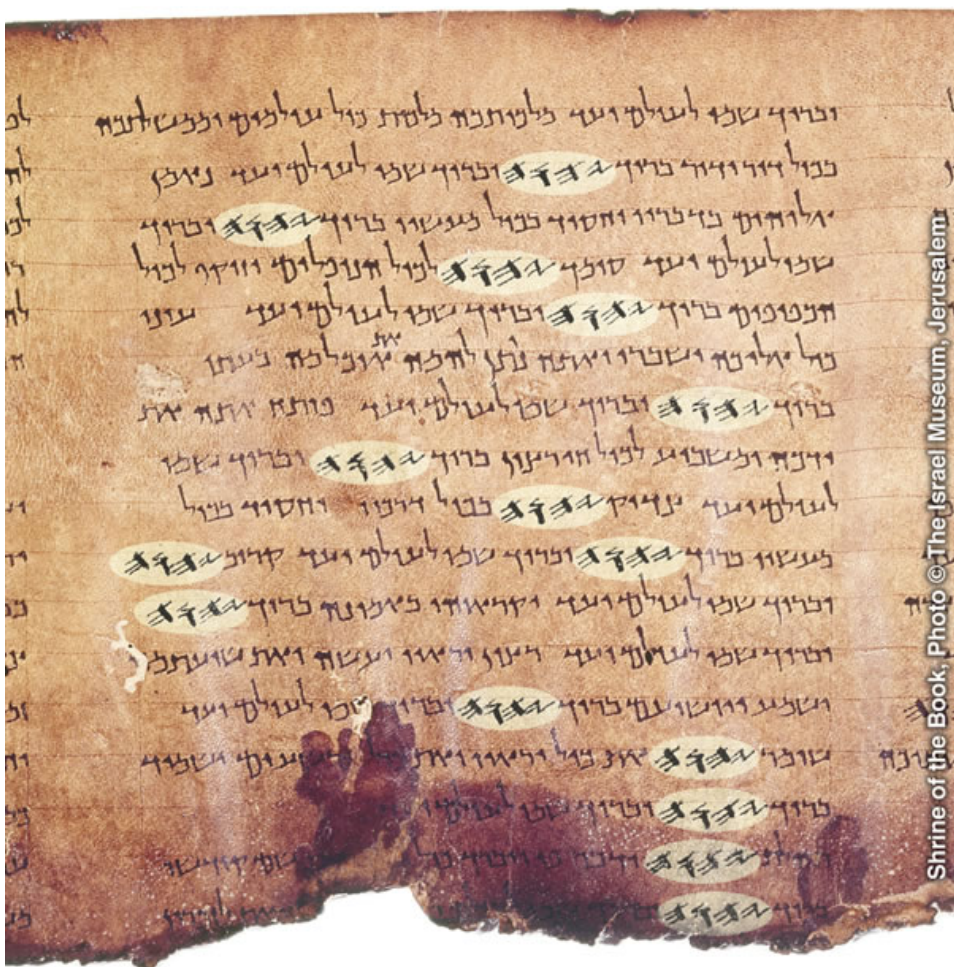 וברוך שמו לעולם ועד מלכותכה מלכות כול עולמים וממשלתכה
בכול דור ודור ברוך 𐤉𐤄𐤅𐤄 וברוך שמו לעולם ועד נאמן
אלוהים בדבריו וחסיד בכול מעשיו ברוך 𐤉𐤄𐤅𐤄 וברוך
שמו לעולם ועד סומך 𐤉𐤄𐤅𐤄 לכול הנופלים וזוקף לכול
הכפופים ברוך 𐤉𐤄𐤅𐤄 וברוך שמו לעולם ועד עיני
כול אליכה ישברו ואתה נותן להמה את אוכלמה בעתו
ברוך 𐤉𐤄𐤅𐤄 וברוך שמו לעולם ועד פותח אתה את
ידכה ומשביע לכול חי רצון ברוך 𐤉𐤄𐤅𐤄 וברוך שמו
לעולם ועד צדיק 𐤉𐤄𐤅𐤄 בכול דרכיו וחסיד בכול
מעשיו ברוך 𐤉𐤄𐤅𐤄 וברוך שמו לעולם ועד קרוב 𐤉𐤄𐤅𐤄
וברוך שמו לעולם ועד יקראוהו באמונה ברוך 𐤉𐤄𐤅𐤄
וברוך שמו לעולם ועד רצון יראיו יעשה ואת שועתמה
ישמע ויושיעם ברוך 𐤉𐤄𐤅𐤄 וברוך שמו לעולם ועד
שומר 𐤉𐤄𐤅𐤄 את כול יראיו ואת כול הרשעים ישמיד
ברוך 𐤉𐤄𐤅𐤄 וברוך שמו לעולם
𐤉𐤄𐤅𐤄 שם קודשו
ברוך 𐤉𐤄𐤅𐤄
Shrine of the Book, Photo © The Israel Museum, Jerusalem